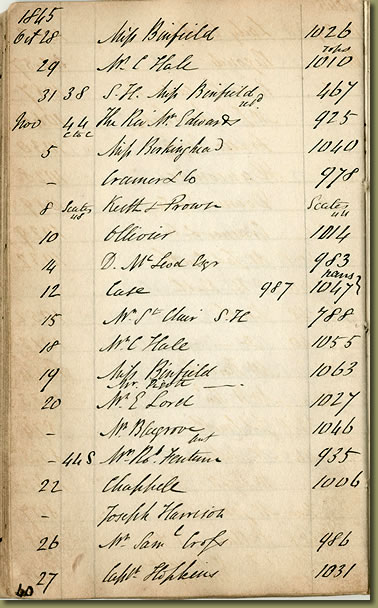 1845
Oct 28 Miss Binfield 1026
29 Mr C Hale 1010
31 38 S.H. Miss Binfield 467
Nov 44 The Rev Mr Edwards 925
5 Miss Birkinghead 1040
– Cramer & Co 978
8 Scates 48 Keith & Prowse Scates 44
10 Ollivier 1014
14 D. McLeod Esqr 983
12 Case 987 1047
15 Mr St Clair S.H 788
18 Mr C Hale 1055
19 Miss Binfield 1063
20 Mr E Lord 1027
– Mr Blagrove 1046
– 448 Mr Robt Fentum 935
22 Chappell 1006
– Joseph Harrison
26 Mr Saml Cross 986
27 Captn Hopkins 1031
40